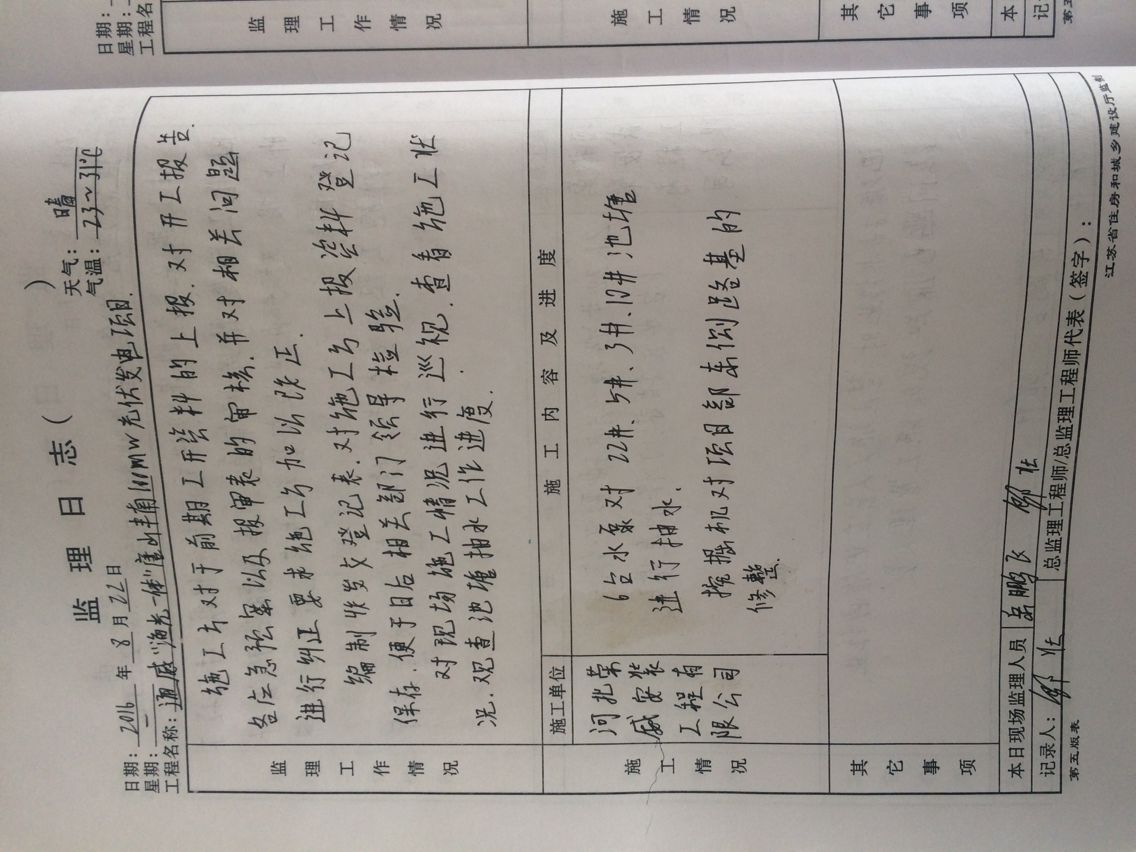 监理日志( )
日期：2016年8月22日 天气：晴
星期：一 气温：23~31℃
工程名称：通威"渔光一体"唐山丰南100MW光伏发电项目.
监理工作情况
施工方对于前期工开资料的上报.对开工报告.
各应急预案以及报审表的审核.并对相关问题
进行纠正要求施工方加以改正.
编制收发文登记表.对施工方上报资料登记
保存.便于日后相关部门领导检验.
对现场施工情况进行巡视.查看施工状
况.观查池塘抽水工作进度.
施工情况
施工单位 施工内容及进度
河北荣
威安装
工程有
限公司
6台水泵对22#、5#、3#、13#池塘
进行抽水.
挖掘机对项目部东侧路基的
修整.
其它事项
本日现场监理人员 岳鹏飞
记录人： 总监理工程师/总监理工程师代表(签字)：
第五版表 江苏省住房和城乡建设厅监制
日期：
星期：
工程名
监理工作情况
施工情况
其它事项
本
记
第五